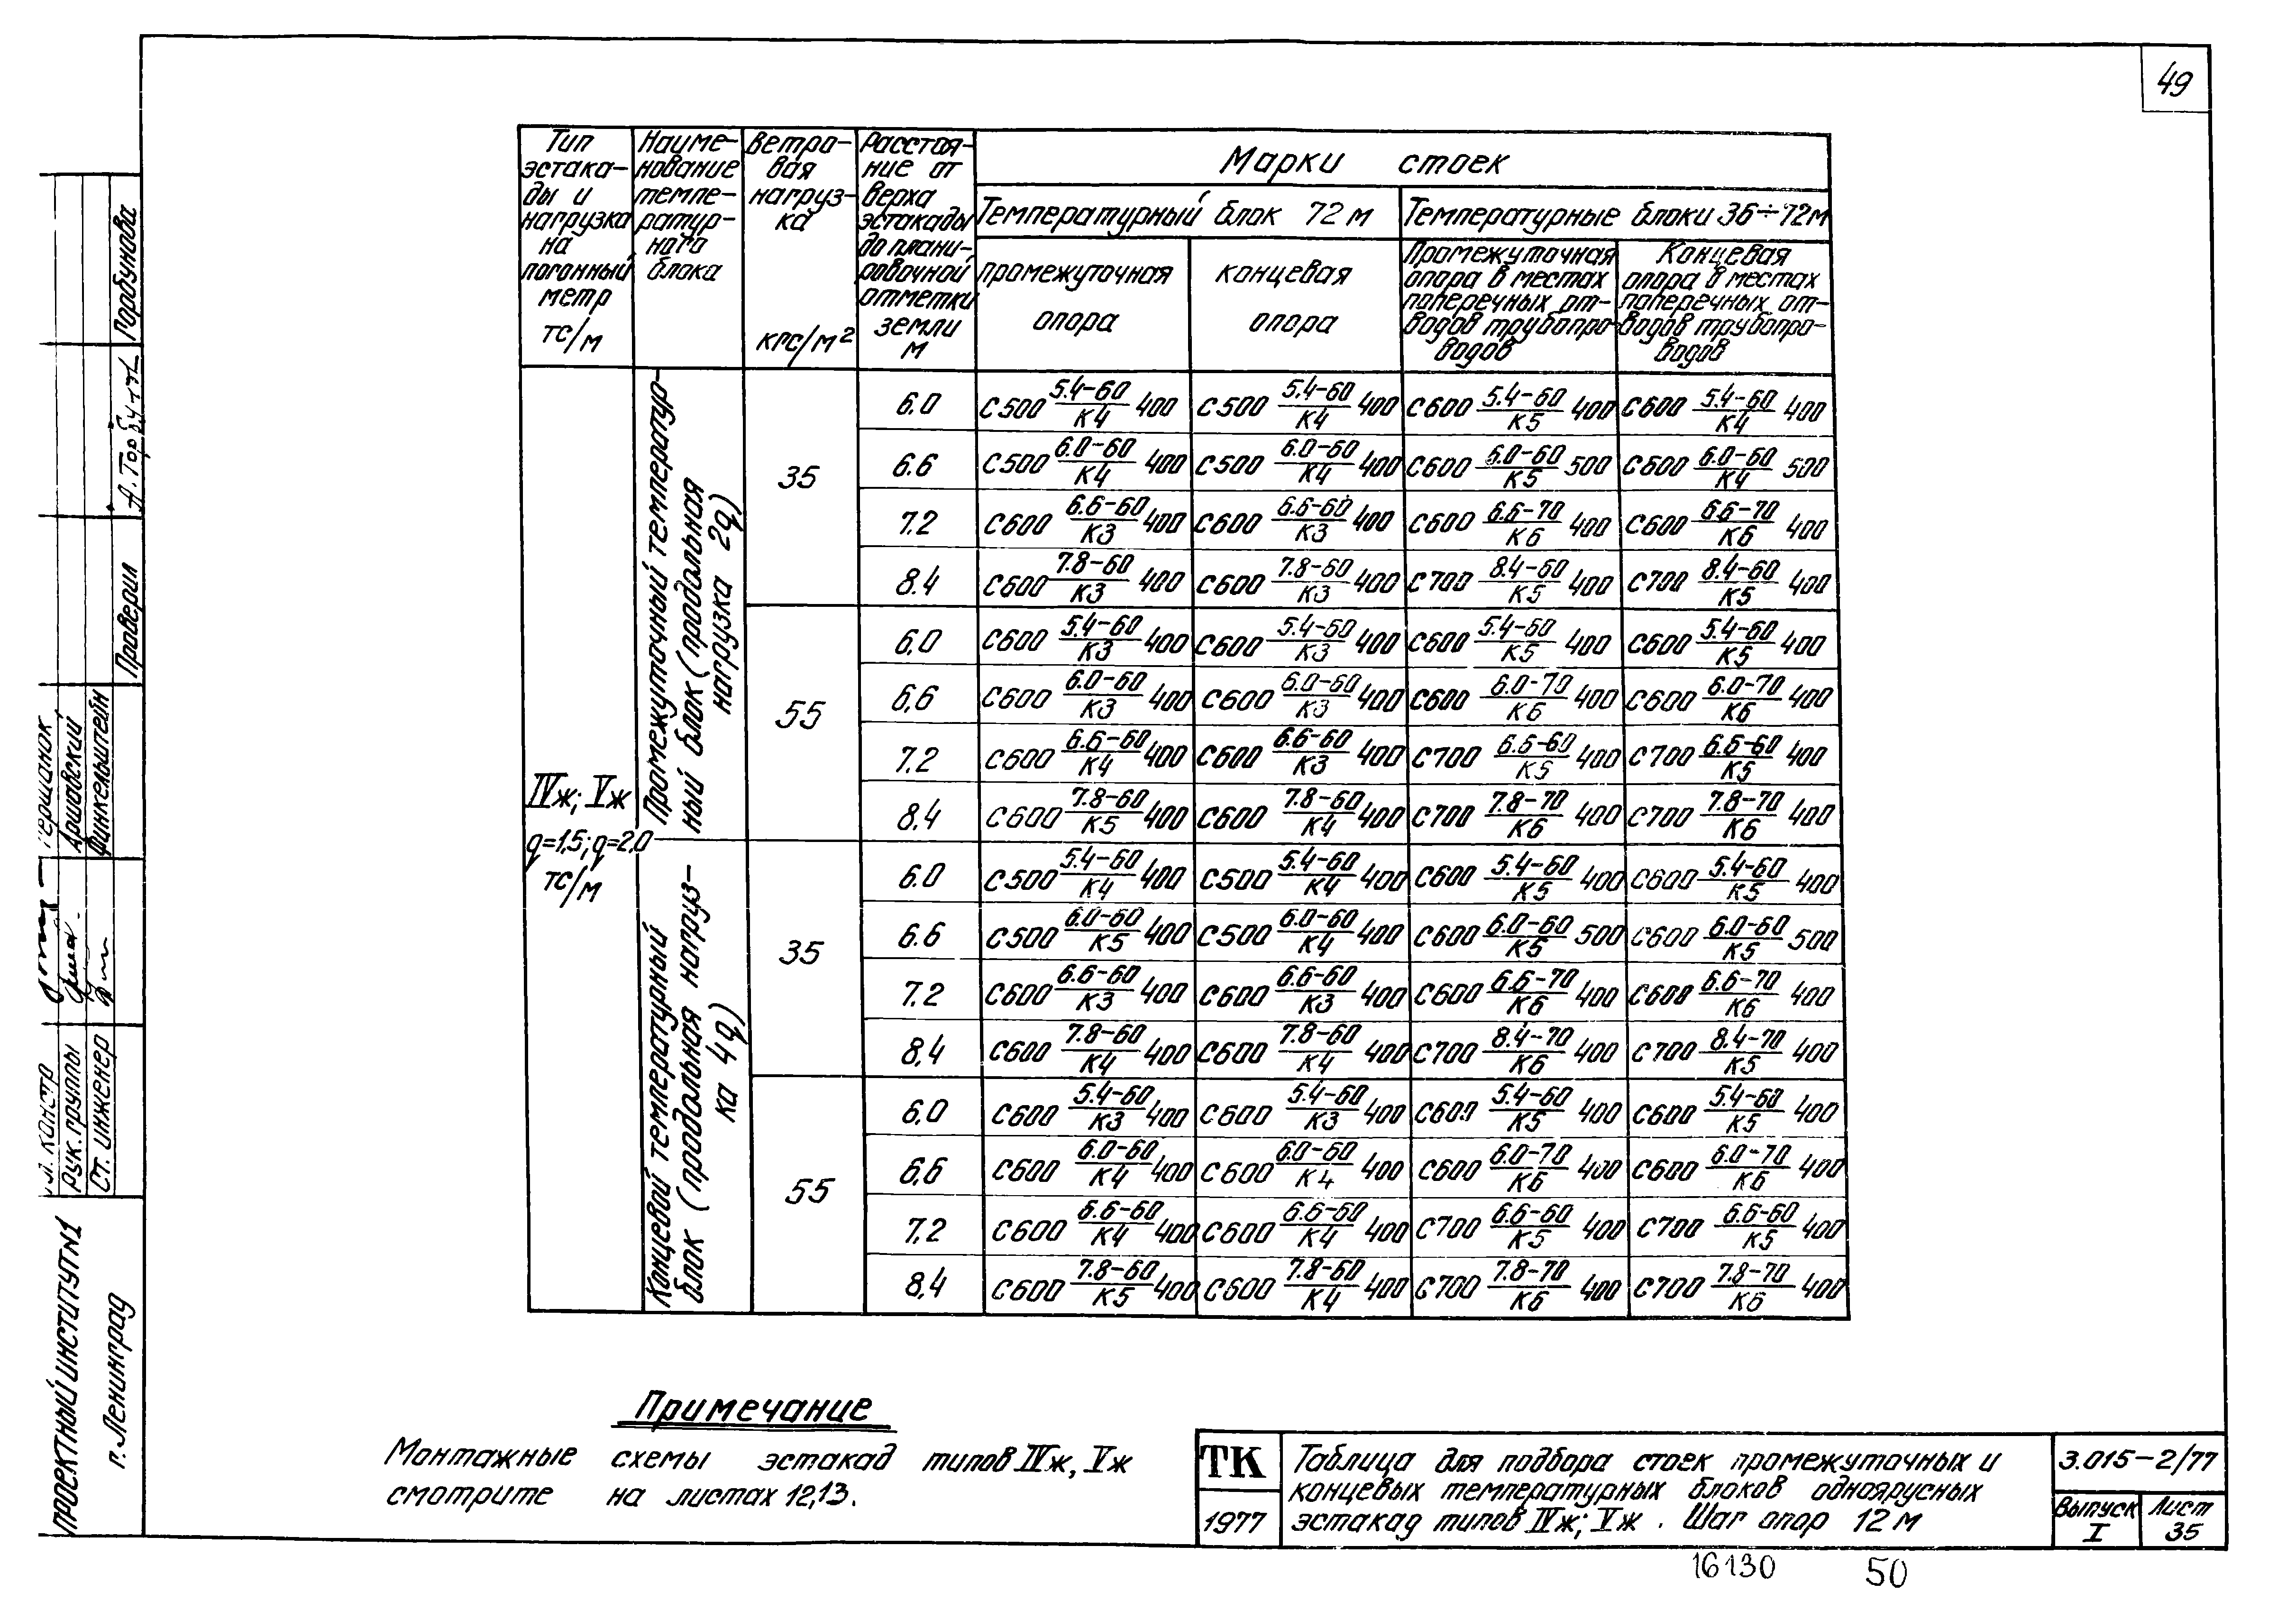 49
Тип эстака-ды и нагрузка на погонный метр тс/м
Наиме-нование темпе-ратур-ного блока
Ветро-вая нагруз-ка кгс/м²
Расстоя-ние от верха эстакады до плани-ровочной отметки земли м
Марки стоек
Температурный блок 72 м
Температурные блоки 36÷72м
промежуточная опора
концевая опора
Промежуточная опора в местах поперечных от-водов трубопро-водов
Концевая опора в местах поперечных от-водов трубопро-водов
IVж; Vж
q=1,5; q=2,0
тс/м
Промежуточный температур-ный блок (продольная нагрузка 2q)
35
6.0 С500 5.4-60/К4 400 С500 5.4-60/К4 400 С600 5.4-60/К5 400 С600 5.4-60/К4 400
6.6 С500 6.0-60/К4 400 С500 6.0-60/К4 400 С600 6.0-60/К5 500 С600 6.0-60/К4 500
7.2 С600 6.6-60/К3 400 С600 6.6-60/К3 400 С600 6.6-70/К6 400 С600 6.6-70/К6 400
8.4 С600 7.8-60/К3 400 С600 7.8-60/К3 400 С700 8.4-60/К5 400 С700 8.4-60/К5 400
55
6,0 С600 5.4-60/К3 400 С600 5.4-60/К3 400 С600 5.4-60/К5 400 С600 5.4-60/К5 400
6,6 С600 6.0-60/К3 400 С600 6.0-60/К3 400 С600 6.0-70/К6 400 С600 6.0-70/К6 400
7.2 С600 6.6-60/К4 400 С600 6.6-60/К3 400 С700 6.6-60/К5 400 С700 6.6-60/К5 400
8,4 С600 7.8-60/К5 400 С600 7.8-60/К4 400 С700 7.8-70/К6 400 С700 7.8-70/К6 400
Концевой температурный блок (продольная нагруз-ка 4q)
35
6.0 С500 5.4-60/К4 400 С500 5.4-60/К4 400 С600 5.4-60/К5 400 С600 5.4-60/К5 400
6.6 С500 6.0-60/К5 400 С500 6.0-60/К4 400 С600 6.0-60/К5 500 С600 6.0-60/К5 500
7.2 С600 6.6-60/К3 400 С600 6.6-60/К3 400 С600 6.6-70/К6 400 С600 6.6-70/К6 400
8,4 С600 7.8-60/К4 400 С600 7.8-60/К4 400 С700 8.4-70/К6 400 С700 8.4-70/К5 400
55
6,0 С600 5.4-60/К3 400 С600 5.4-60/К3 400 С600 5.4-60/К5 400 С600 5.4-60/К5 400
6,6 С600 6.0-60/К4 400 С600 6.0-60/К4 400 С600 6.0-70/К6 400 С600 6.0-70/К6 400
7,2 С600 6.6-60/К4 400 С600 6.6-60/К4 400 С700 6.6-60/К5 400 С700 6.6-60/К5 400
8,4 С600 7.8-60/К5 400 С600 7.8-60/К4 400 С700 7.8-70/К6 400 С700 7.8-70/К6 400
Примечание
Монтажные схемы эстакад типов IVж, Vж
смотрите на листах 12,13.
ТК
1977
Таблица для подбора стоек промежуточных и
концевых температурных блоков одноярусных
эстакад типов IVж; Vж. Шаг опор 12 м
3.015-2/77
Выпуск I
Лист 35
16130 50
Горбунова
Проверил
Аршавский
Финкельштейн
констр
Рук. группы
Ст. инженер
ПРОЕКТНЫЙ ИНСТИТУТ №1
г. Ленинград